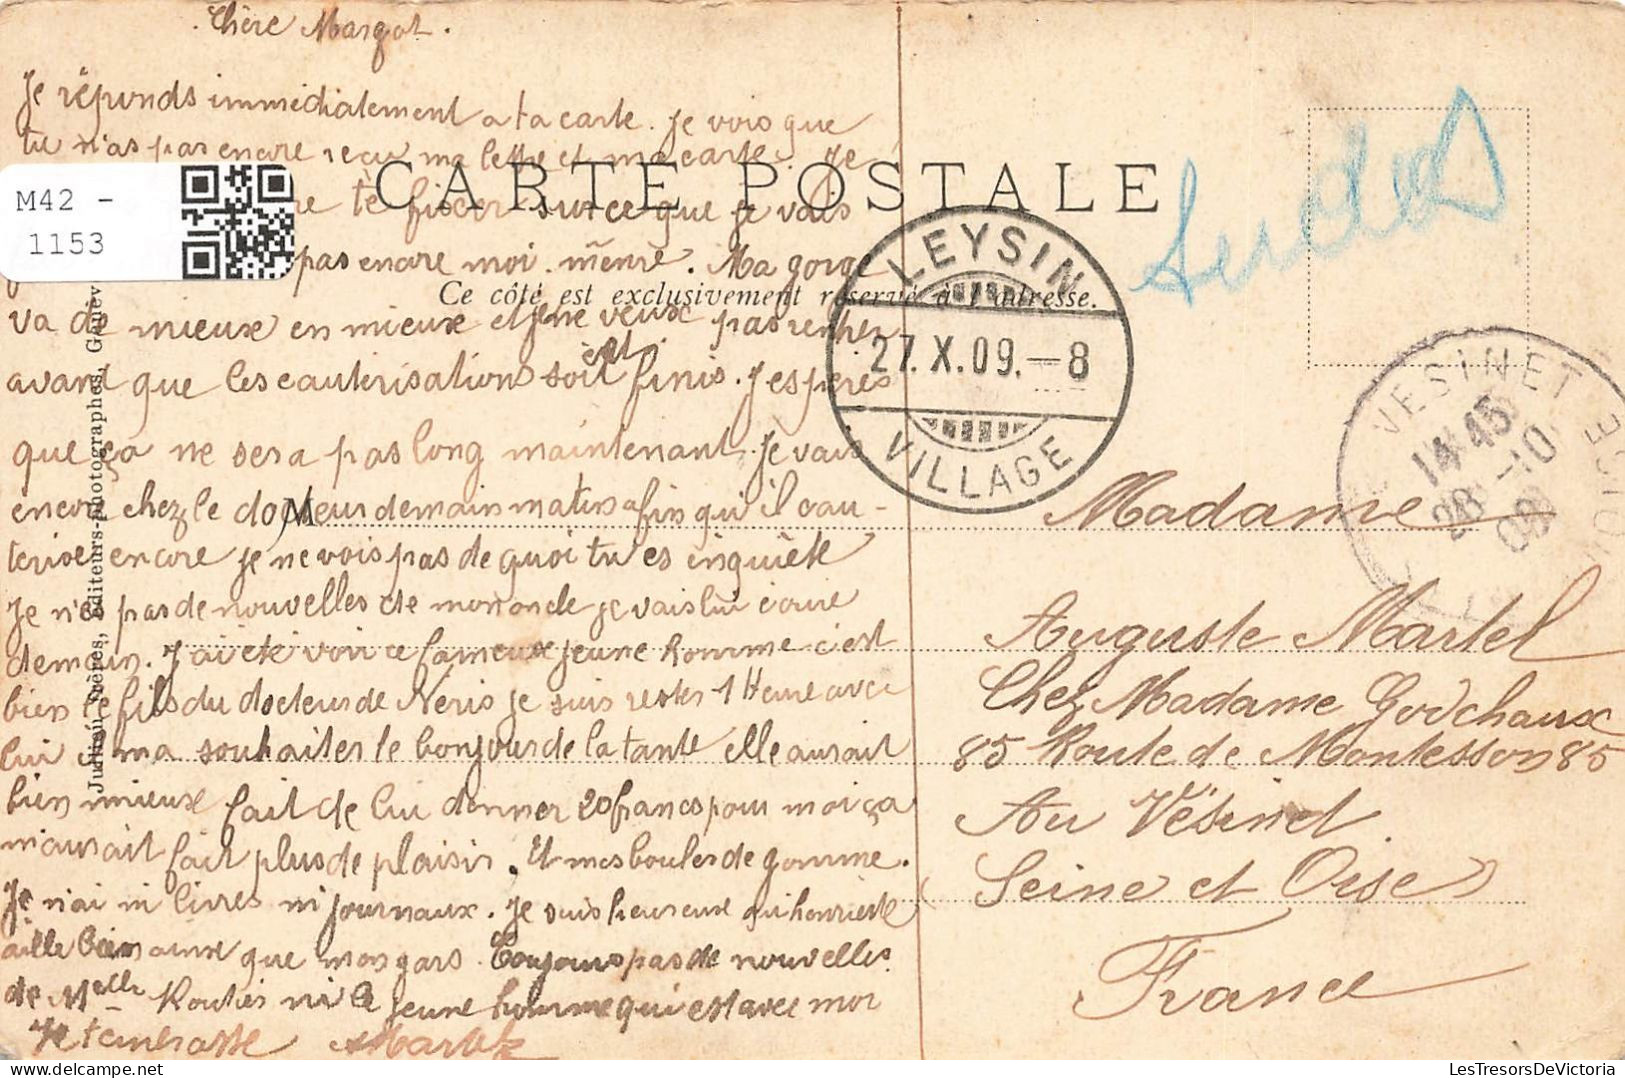 Chère Margot.
Je réponds immédiatement a ta carte. Je vois que
tu n'as pas encore reçu ma lettre et ma carte. Je
re tè fixer sur ce que je vais
pas encore moi. même. Ma gorge
va de mieux en mieux et je ne veux pas rentrer
avant que les cautérisations soit finis. J'espères
que ça ne sera pas long maintenant. Je vais
encore chez le docteur demain matin afin qu'il cau-
terise encore je ne vois pas de quoi tu es inquiète
Je n'ai pas de nouvelles de mon oncle je vais lui écrire
demain. J'ai été voir ce fameux jeune homme c'est
bien le fils du docteur de Néris je suis restes 1 Heure avec
lui ma souhaiter le bonjour de la tante elle aurait
bien mieux fait de lui donner 20 francs pour moi ça
m'aurait fait plus de plaisir. Et mes boules de gomme.
Je n'ai ni livres ni journaux. Je suis heureuse qu'henriette
aille bien ainsi que mon gars. Toujours pas de nouvelles
de Melle ni le jeune homme qui est avec moi
Je t'embrasse
M42 -
1153
CARTE POSTALE
Ce côté est exclusivement réservé à l'adresse.
Jullien frères, Editeurs-photographes, Genèv
M
LEYSIN
27.X.09.-8
VILLAGE
VESINET
14 45
28 -10
09
SEINE ET OISE
Madame
Auguste Martel
Chez Madame Godchaux
85 Route de Montesson 85
Au Vésinet
(Seine et Oise)
France
LesTresorsDeVictoria